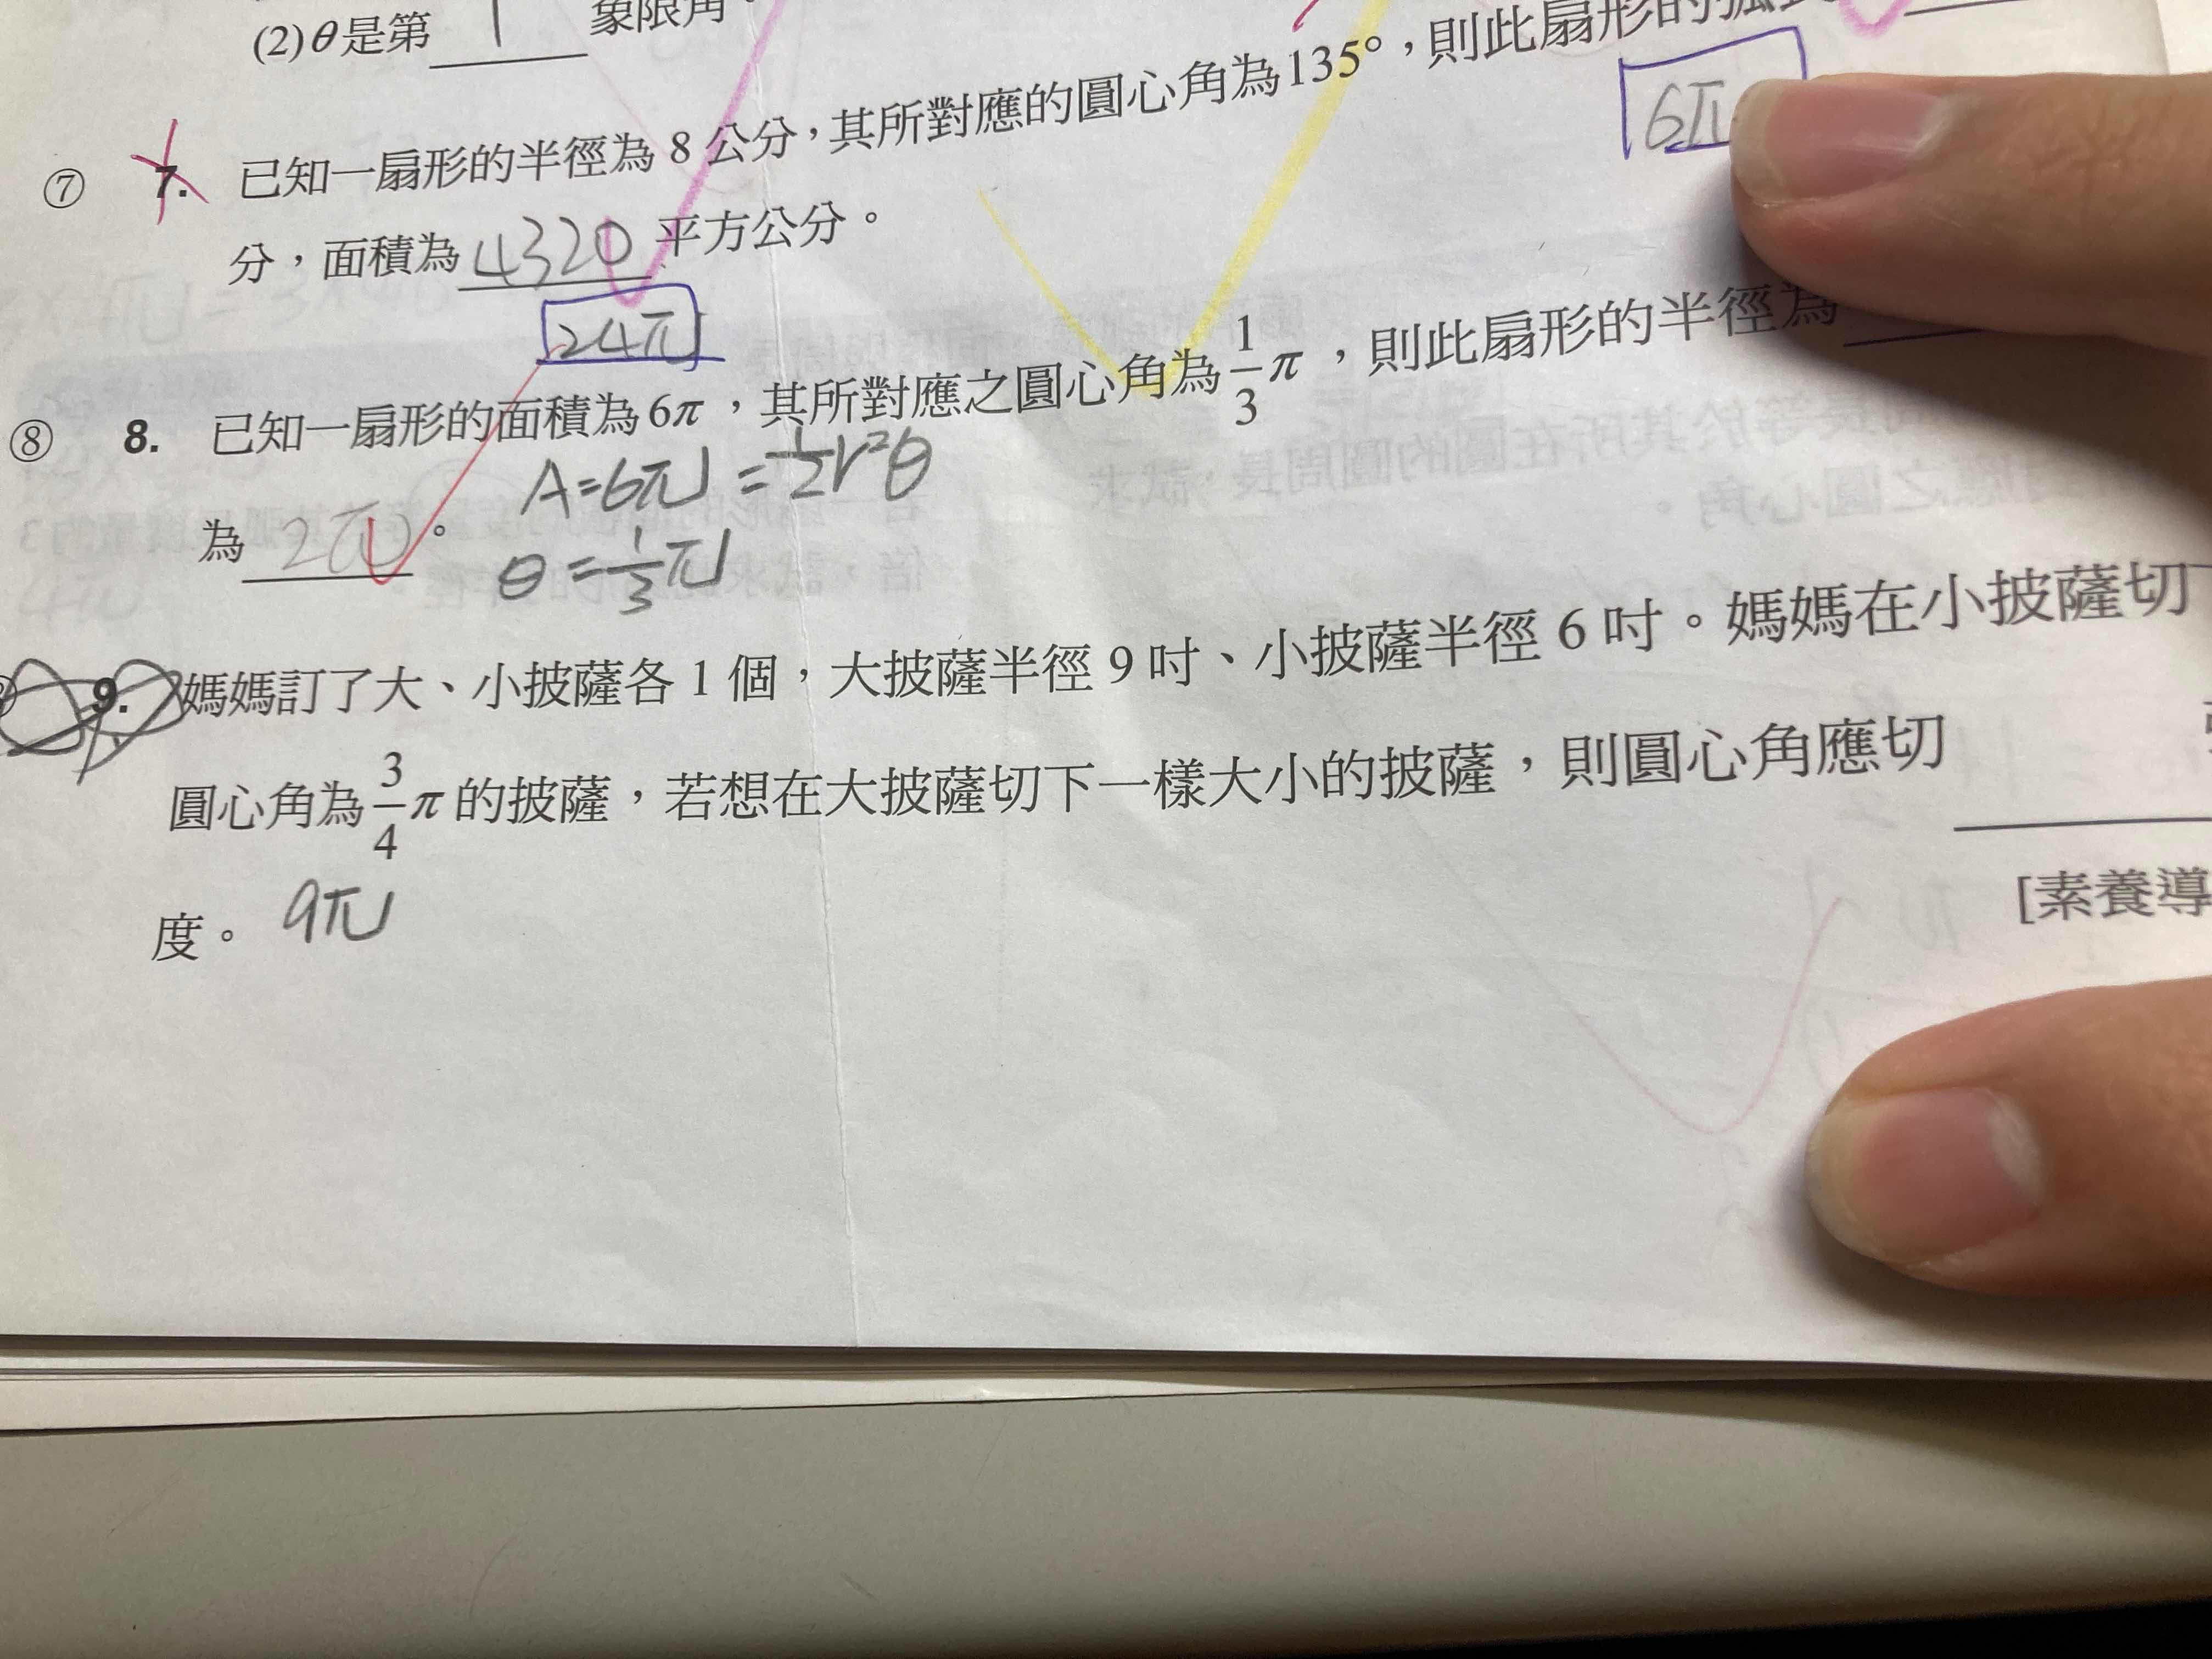 (2)θ是第 1 象限角。
⑦ 7. 已知一扇形的半徑為 8 公分，其所對應的圓心角為135°，則此扇形的弧
6π
分，面積為 4320 平方公分。
24π
⑧ 8. 已知一扇形的面積為6π，其所對應之圓心角為1/3π，則此扇形的半徑為
A=6π=1/2r²θ
為 2π 。
θ=1/3π
9. 媽媽訂了大、小披薩各 1 個，大披薩半徑 9 吋、小披薩半徑 6 吋。媽媽在小披薩切下
圓心角為3/4π的披薩，若想在大披薩切下一樣大小的披薩，則圓心角應切
[素養導
度。 9π